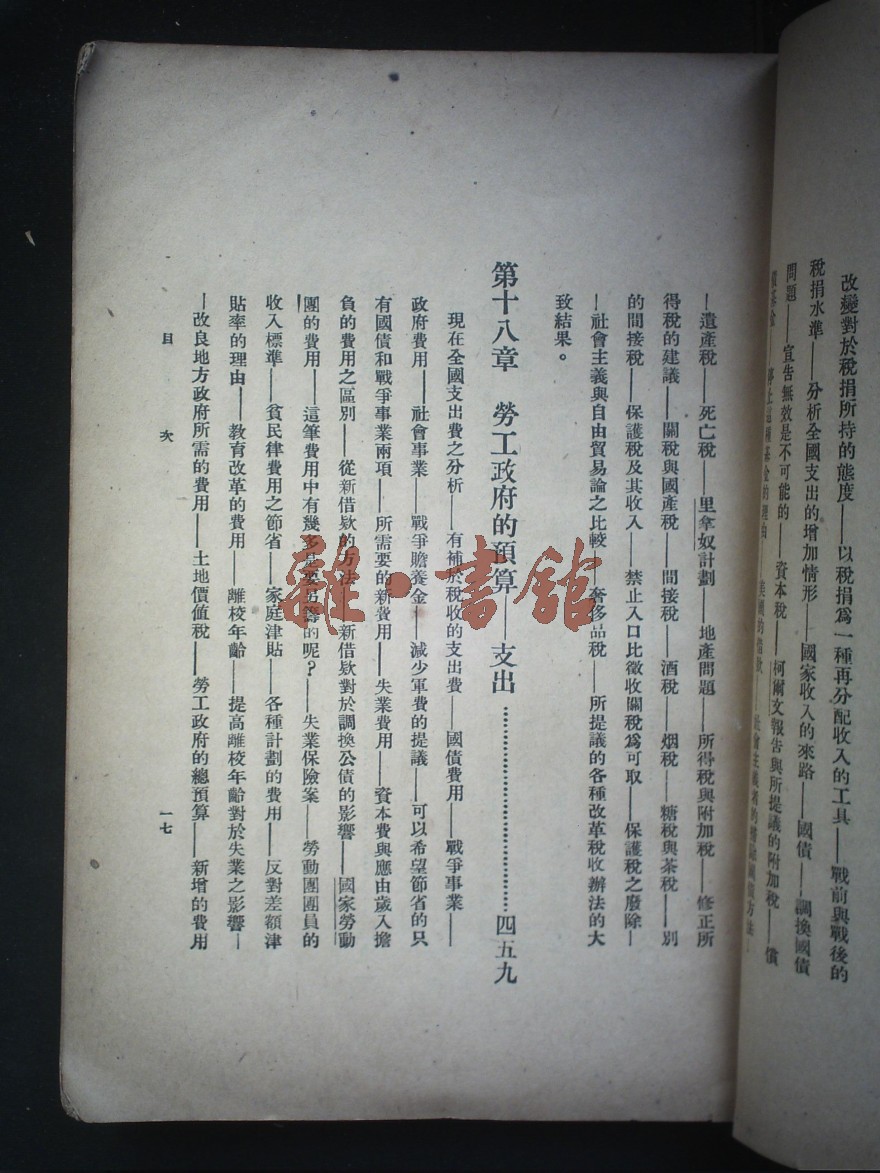 改變對於稅捐所持的態度——以稅捐爲一種再分配收入的工具——戰前與戰後的
稅捐水準——分析全國支出的增加情形——國家收入的來路——國債——調換國債
問題——宣告無效是不可能的——資本稅——柯爾文報告與所提議的附加稅——償
的理由——美國的借款——社會主義者的
——遺產稅——死亡稅——里拿奴計劃——地產問題——所得稅與附加稅——修正所
得稅的建議——關稅與國產稅——間接稅——酒稅——烟稅——糖稅與茶稅——別
的間接稅——保護稅及其收入——禁止入口比徵收關稅爲可取——保護稅之廢除—
—社會主義與自由貿易論之比較——奢侈品稅——所提議的各種改革稅收辦法的大
致結果。
第十八章 勞工政府的預算——支出……………………四五九
現在全國支出費之分析——有補於稅收的支出費——國債費用——戰爭事業——
政府費用——社會事業——戰爭贍養金——減少軍費的提議——可以希望節省的只
有國債和戰爭事業兩項——所需要的新費用——失業費用——資本費與應由歲入擔
負的費用之區別——從新借欵的方法——新借欵對於調換公債的影響——國家勞動
團的費用——這筆費用中有幾多是要另籌的呢?——失業保險案——勞動團團員的
收入標準——貧民律費用之節省——家庭津貼——各種計劃的費用——反對差額津
貼率的理由——教育改革的費用——離校年齡——提高離校年齡對於失業之影響—
—改良地方政府所需的費用——土地價值稅——勞工政府的總預算——新增的費用
目次
一七
雜·書館